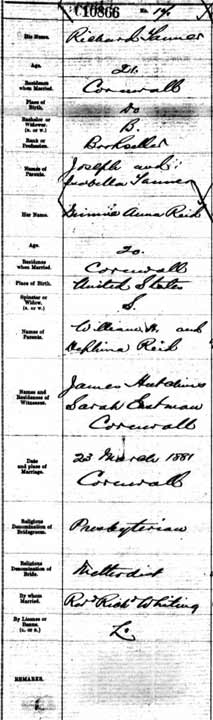 C10866 - 14.
His Name.
Richard L Tanner
Age.
21.
Residence
when Married.
Cornwall
Place of
Birth.
Do
Bachelor or
Widower.
(B. or W.)
B.
Rank or
Profession.
Bookseller
Names of
Parents.
Joseph and
Isabella Tanner
Her Name.
Minnie Anna Reid
Age.
20.
Residence
when Married.
Cornwall
Place of Birth.
United States
Spinster or
Widow.
(S. or W.)
S.
Names of
Parents.
William A. and
Reid
Names and
Residences of
Witnesses.
James Hutchins
Sarah Eastman
Cornwall
Date
and place of
Marriage.
23 March 1881
Cornwall
Religious
Denomination of
Bridegroom.
Presbyterian
Religious
Denomination of
Bride.
Methodist
By whom
Married.
Revd Richd Whiting
By License or
Banns.
(L. or B.)
L
REMARKS.